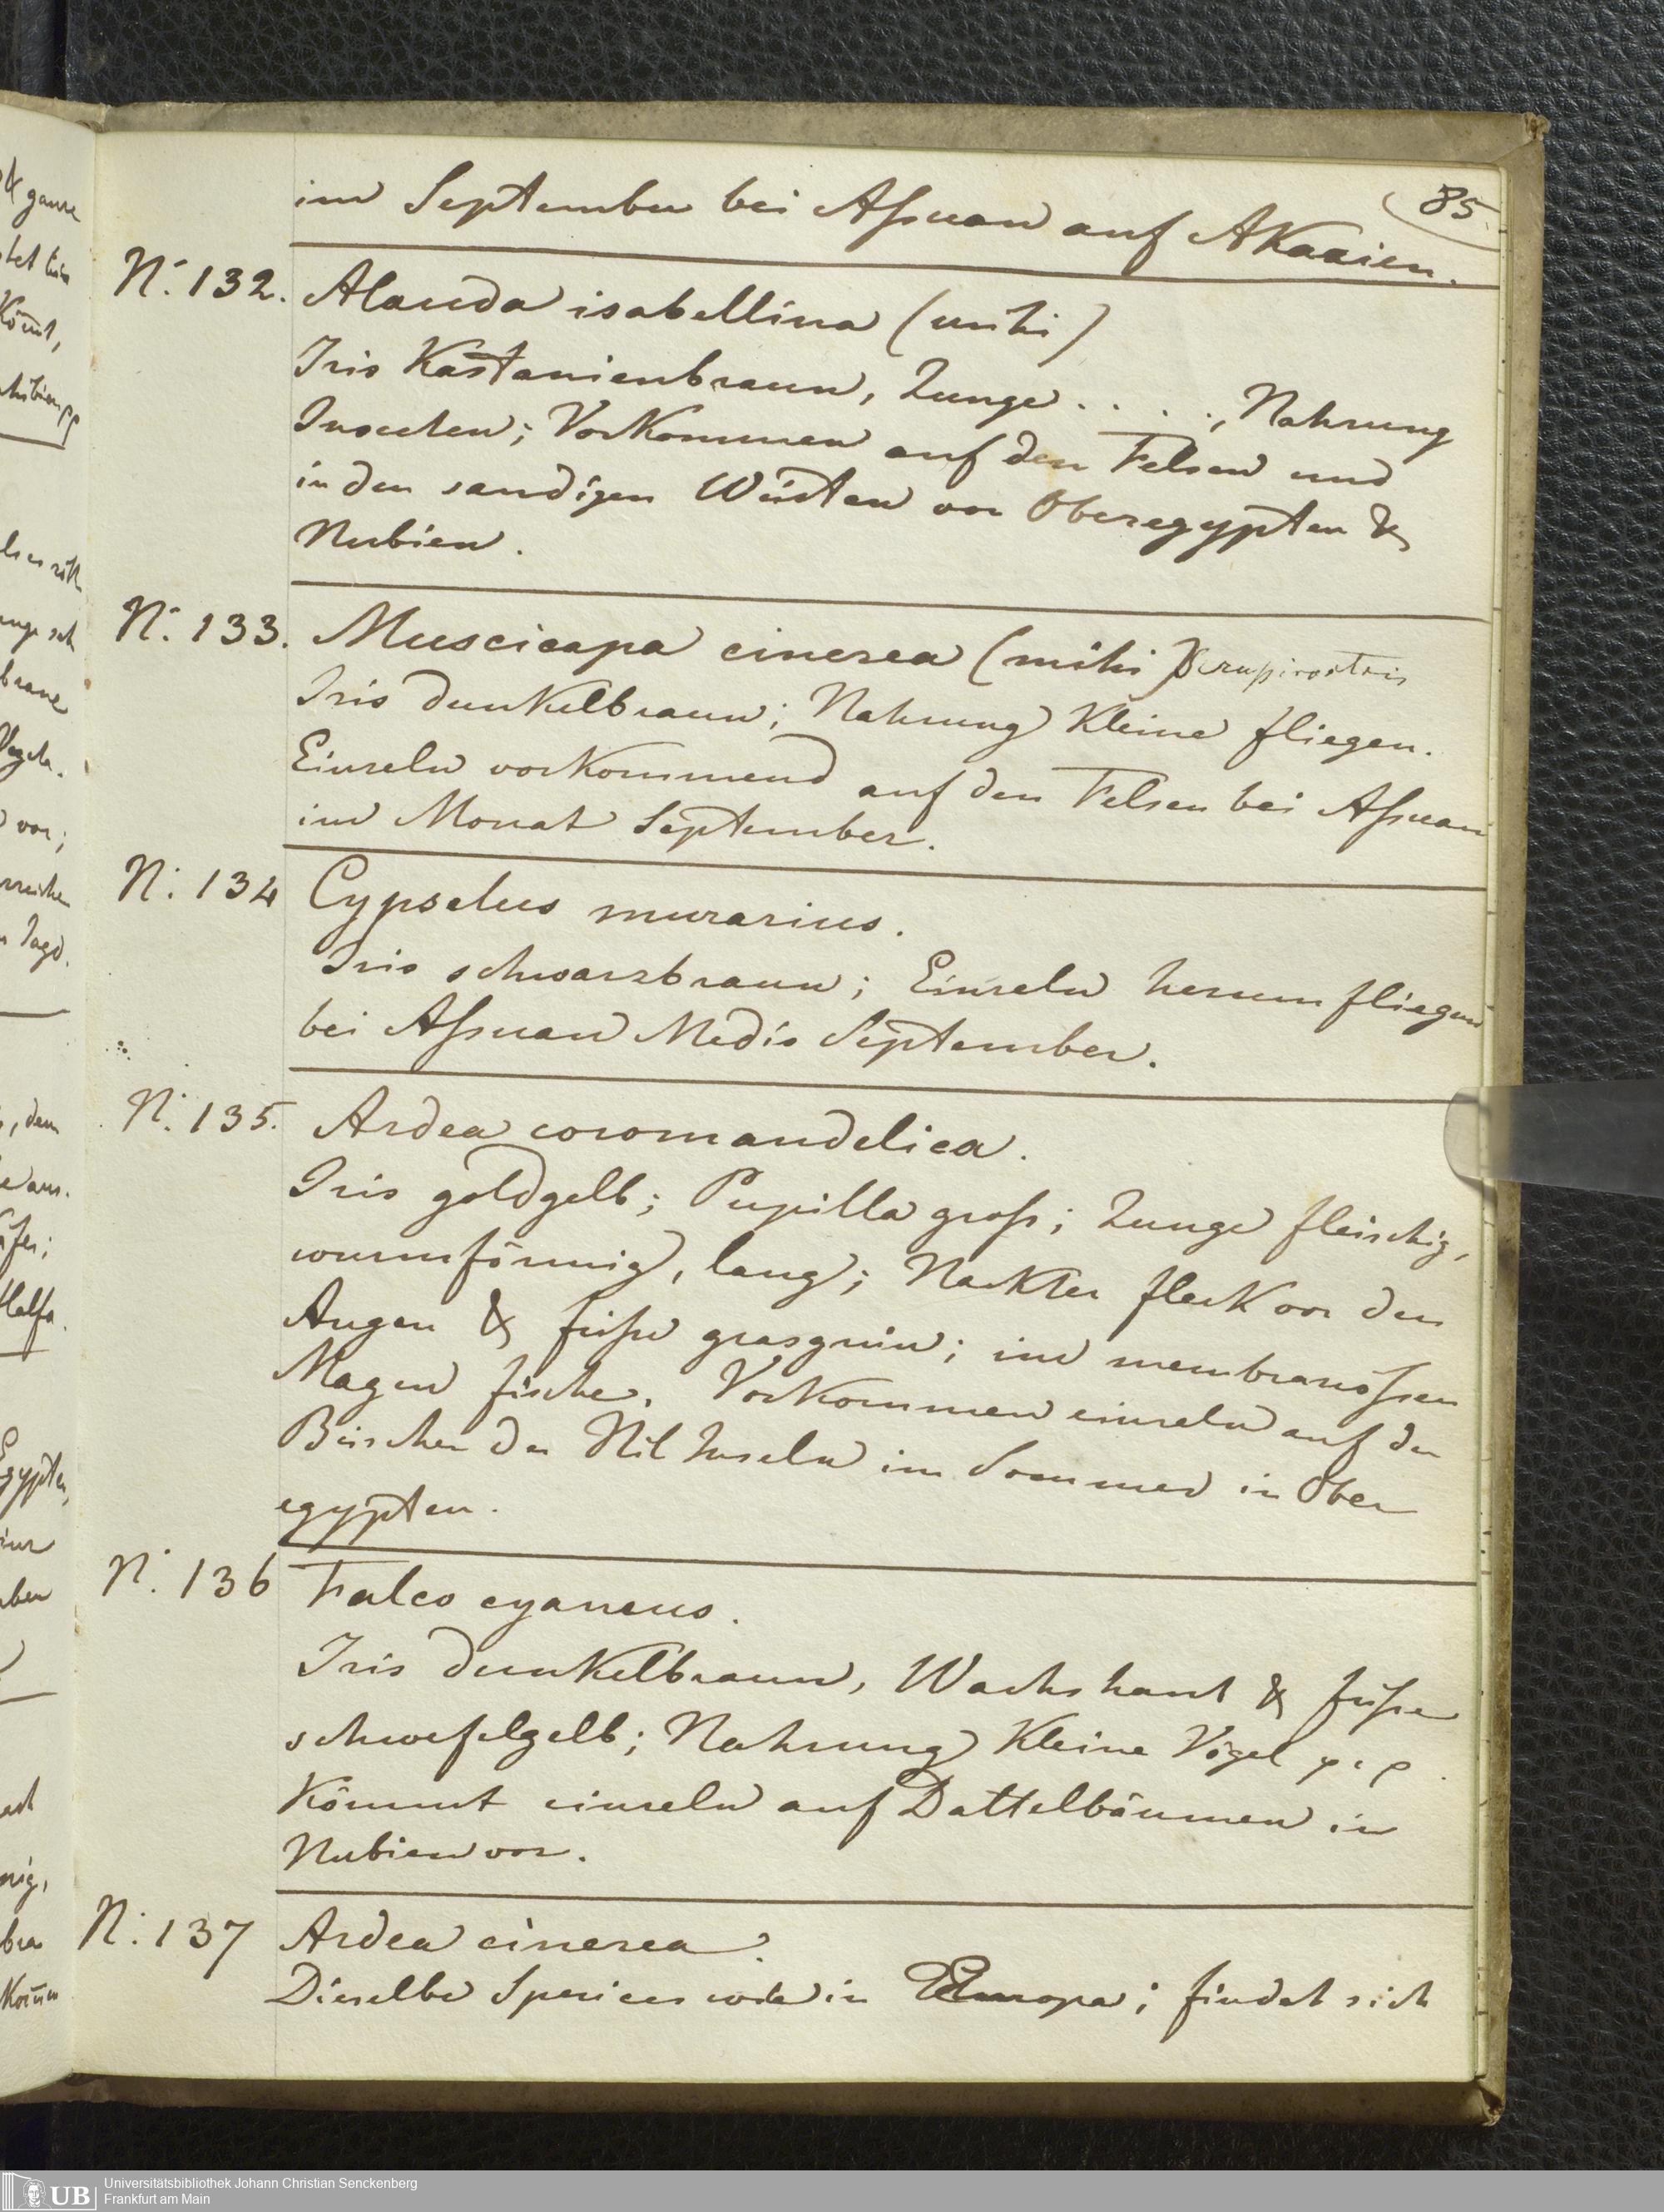 85
im September bei Aſsuan auf Akazien.
N: 132. Alauda isabellina (mihi)
Iris Kastanienbraun, Zunge . . . . , Nahrung
Insecten; Vorkommen auf den Felsen und
in den sandigen Wüsten von Oberegypten &
Nubien.
N: 133. Muscicapa cinerea (mihi)
Iris dunkelbraun; Nahrung Kleine fliegen.
Einzeln vorkommend auf den Felsen bei Aſsuan
im Monat September.
N: 134 Cypselus murarius.
Iris schwarzbraun; Einzeln herum fliegend
bei Aſsuan Medio September.
N: 135. Ardea coromandelica.
Iris goldgelb; Pupilla groſs; Zunge fleischig,
wurmförmig, lang; Nackter fleck vor den
Augen & füſse grasgrün; im membranöſsen
Magen fische. Vorkommen einzeln auf den
Büschen der Nil Inseln im Sommer in Ober
egypten.
N: 136 Falco cyaneus.
Iris dunkelbraun, Wachshaut & füſse
schwefelgelb; Nahrung Kleine Vögel
Kömmt einzeln auf Dattelbäumen in
Nubien vor.
N: 137 Ardea cinerea.
Dieselbe Species wie in Europa; findet sich
UB Universitätsbibliothek Johann Christian Senckenberg
Frankfurt am Main